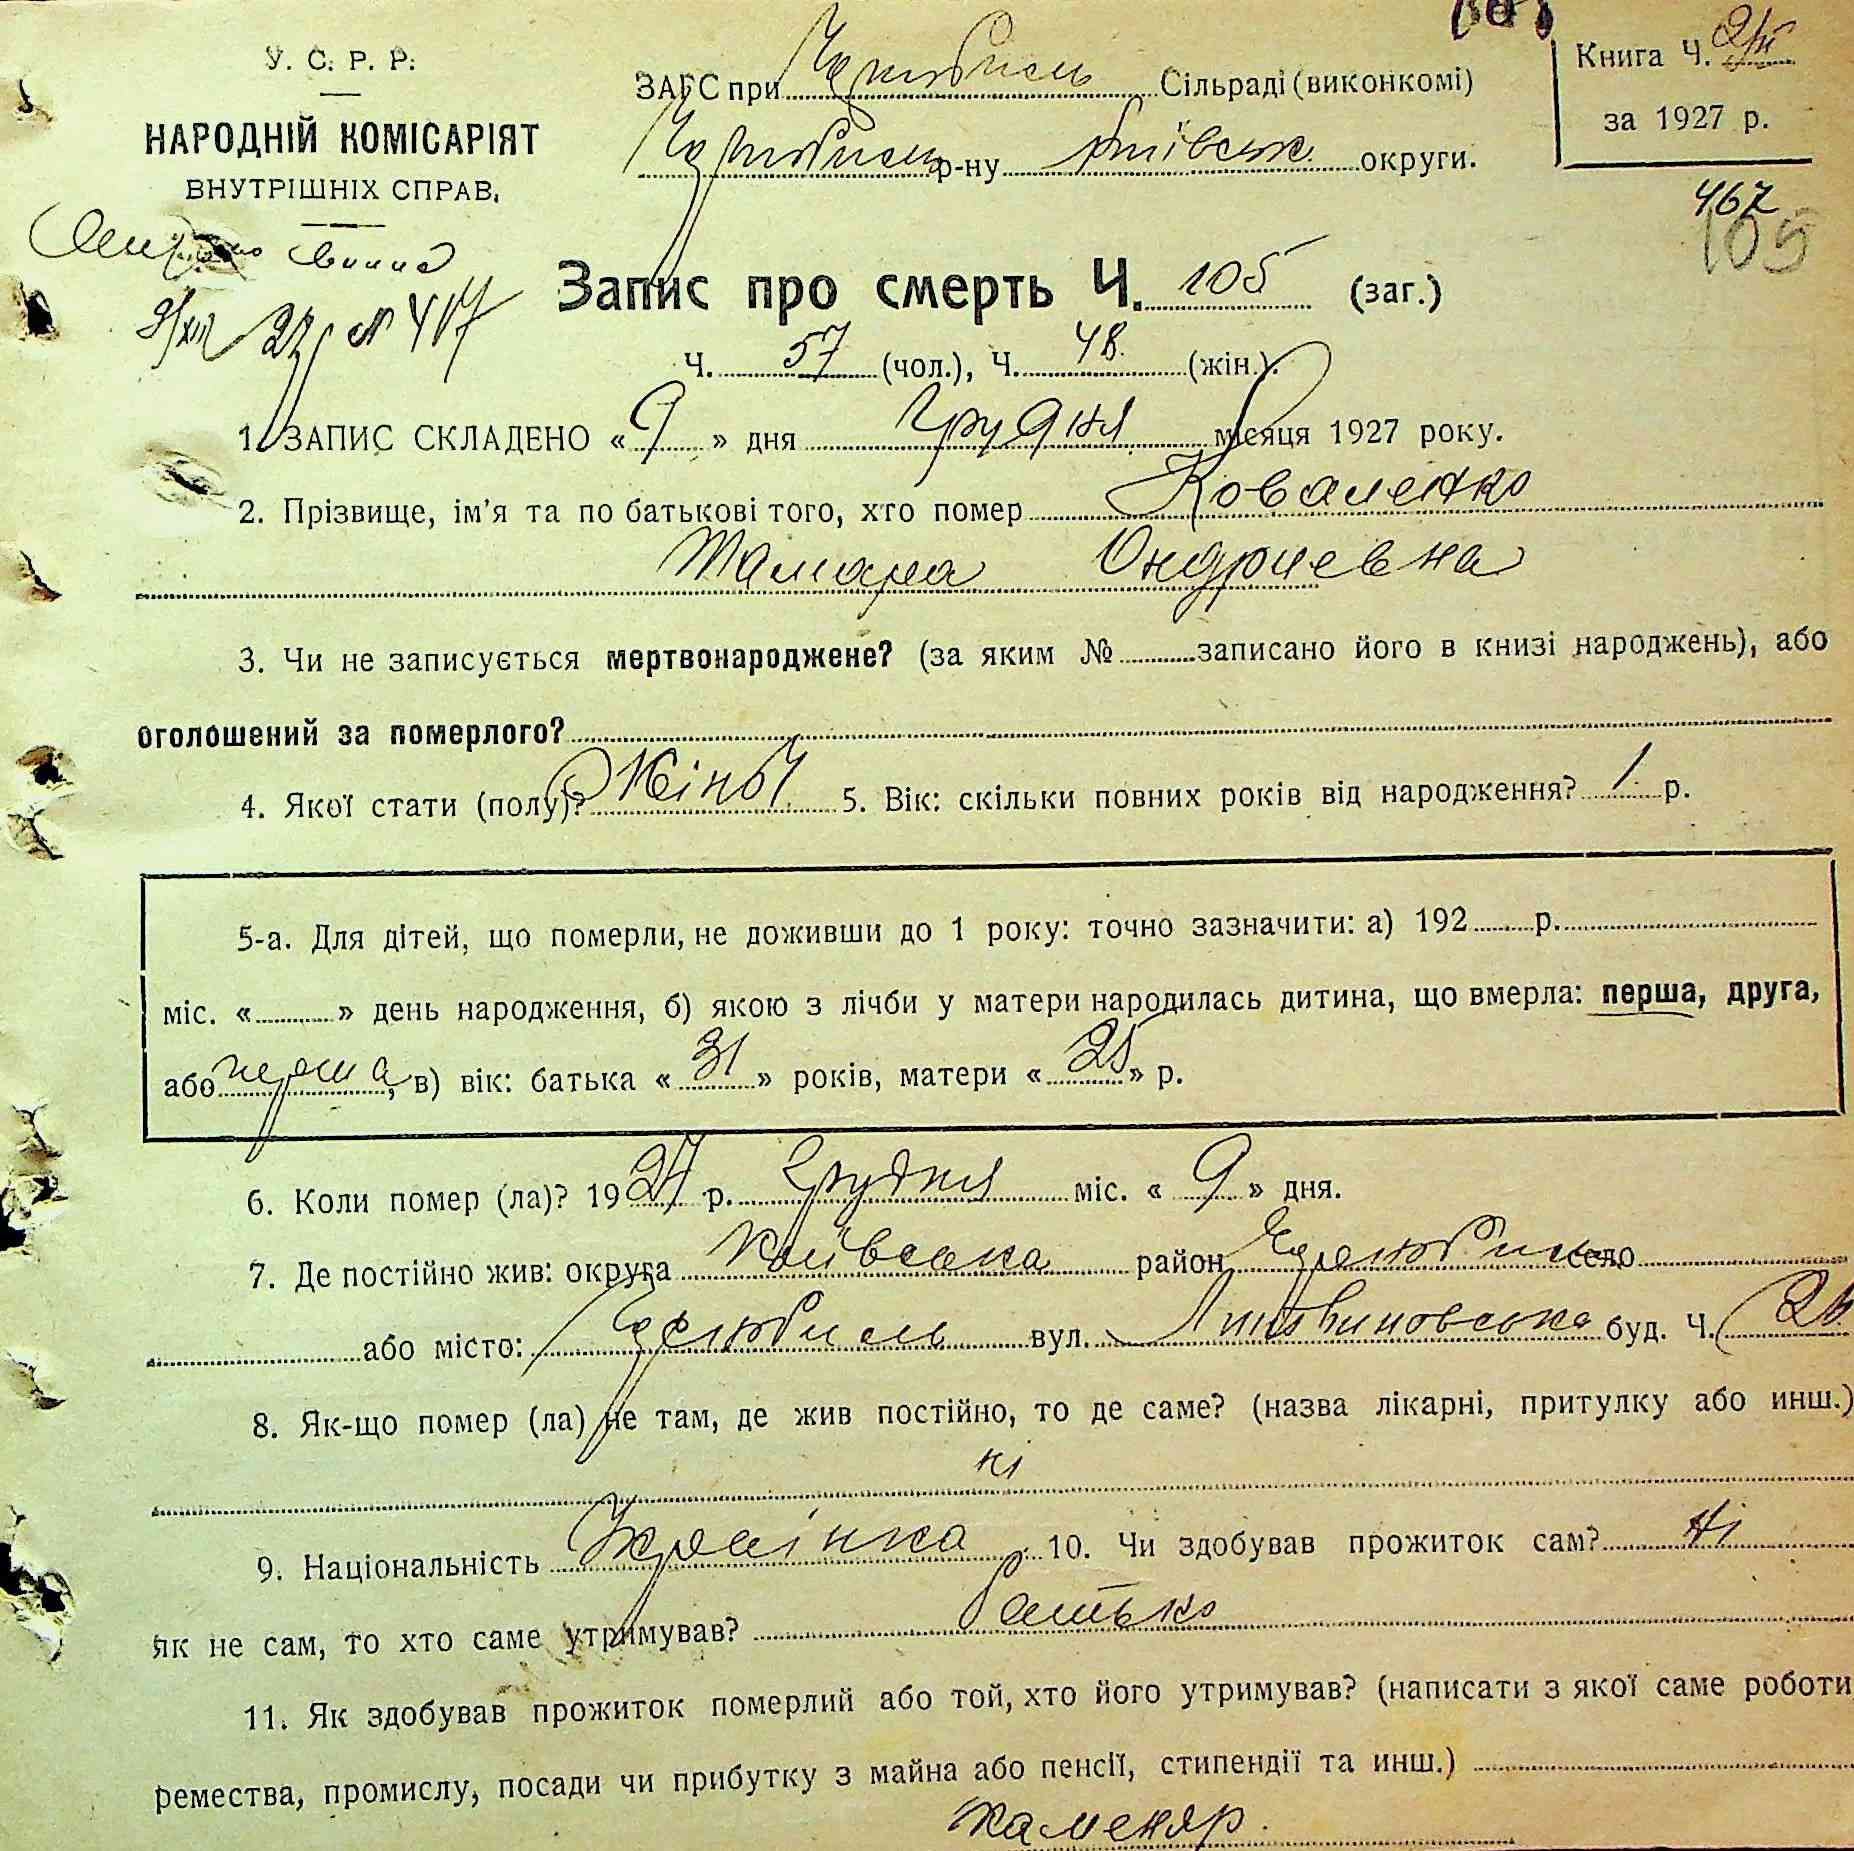 У. С. Р. Р.
НАРОДНІЙ КОМІСАРІЯТ
ВНУТРІШНІХ СПРАВ,
ЗАГС при Чернобиль Сільраді (виконкомі)
Чернобиль р-ну Київськ. округи.
Книга Ч.
за 1927 р.
467
105
№ 417
Запис про смерть Ч. 105 (заг.)
Ч. 57 (чол.), Ч. 48 (жін.).
1. ЗАПИС СКЛАДЕНО « 9 » дня Грудня місяця 1927 року.
2. Прізвище, ім'я та по батькові того, хто помер Коваленко
Тамара Ондриевна
3. Чи не записується мертвонароджене? (за яким № записано його в книзі народжень), або
оголошений за померлого?
4. Якої стати (полу)? Жіноч 5. Вік: скільки повних років від народження? 1 р.
5-а. Для дітей, що померли, не доживши до 1 року: точно зазначити: а) 192 р.
міс. « » день народження, б) якою з лічби у матери народилась дитина, що вмерла: перша, друга,
або перша, в) вік: батька « 31 » років, матери « 25 » р.
6. Коли помер (ла)? 1927 р. Грудня міс. « 9 » дня.
7. Де постійно жив: округа Київська район Чернобиль село
або місто: Чернобиль вул. Литвиновська буд. Ч.
8. Як-що помер (ла) не там, де жив постійно, то де саме? (назва лікарні, притулку або инш.)
ні
9. Національність Украінка 10. Чи здобував прожиток сам? ні
як не сам, то хто саме утримував? батько
11. Як здобував прожиток померлий або той, хто його утримував? (написати з якої саме роботи,
ремества, промислу, посади чи прибутку з майна або пенсії, стипендії та инш.)
каменяр.